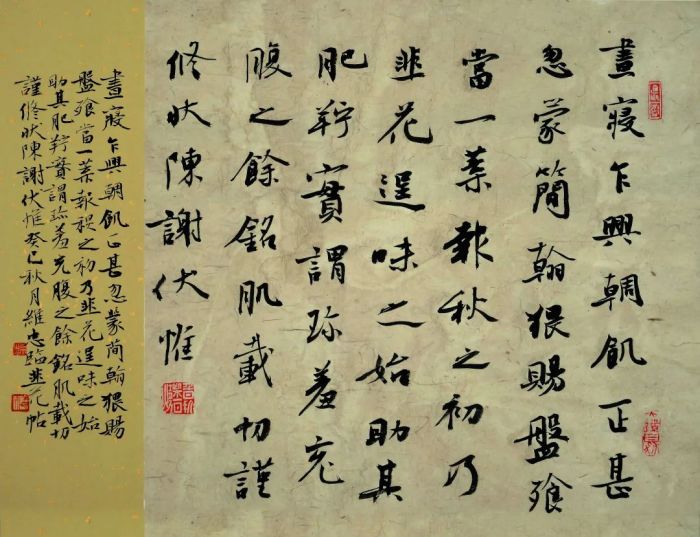 晝寢乍興輖飢正甚
忽蒙簡翰猥賜盤飧
當一葉報秋之初乃
韭花逞味之始助其
肥羜實謂珍羞充
腹之餘銘肌載切謹
修狀陳謝伏惟
晝寢乍興輖飢正甚忽蒙簡翰猥賜
盤飧當一葉報秋之初乃韭花逞味之始
助其肥羜實謂珍羞充腹之餘銘肌載切
謹修狀陳謝伏惟癸巳秋月維忠臨韭花帖